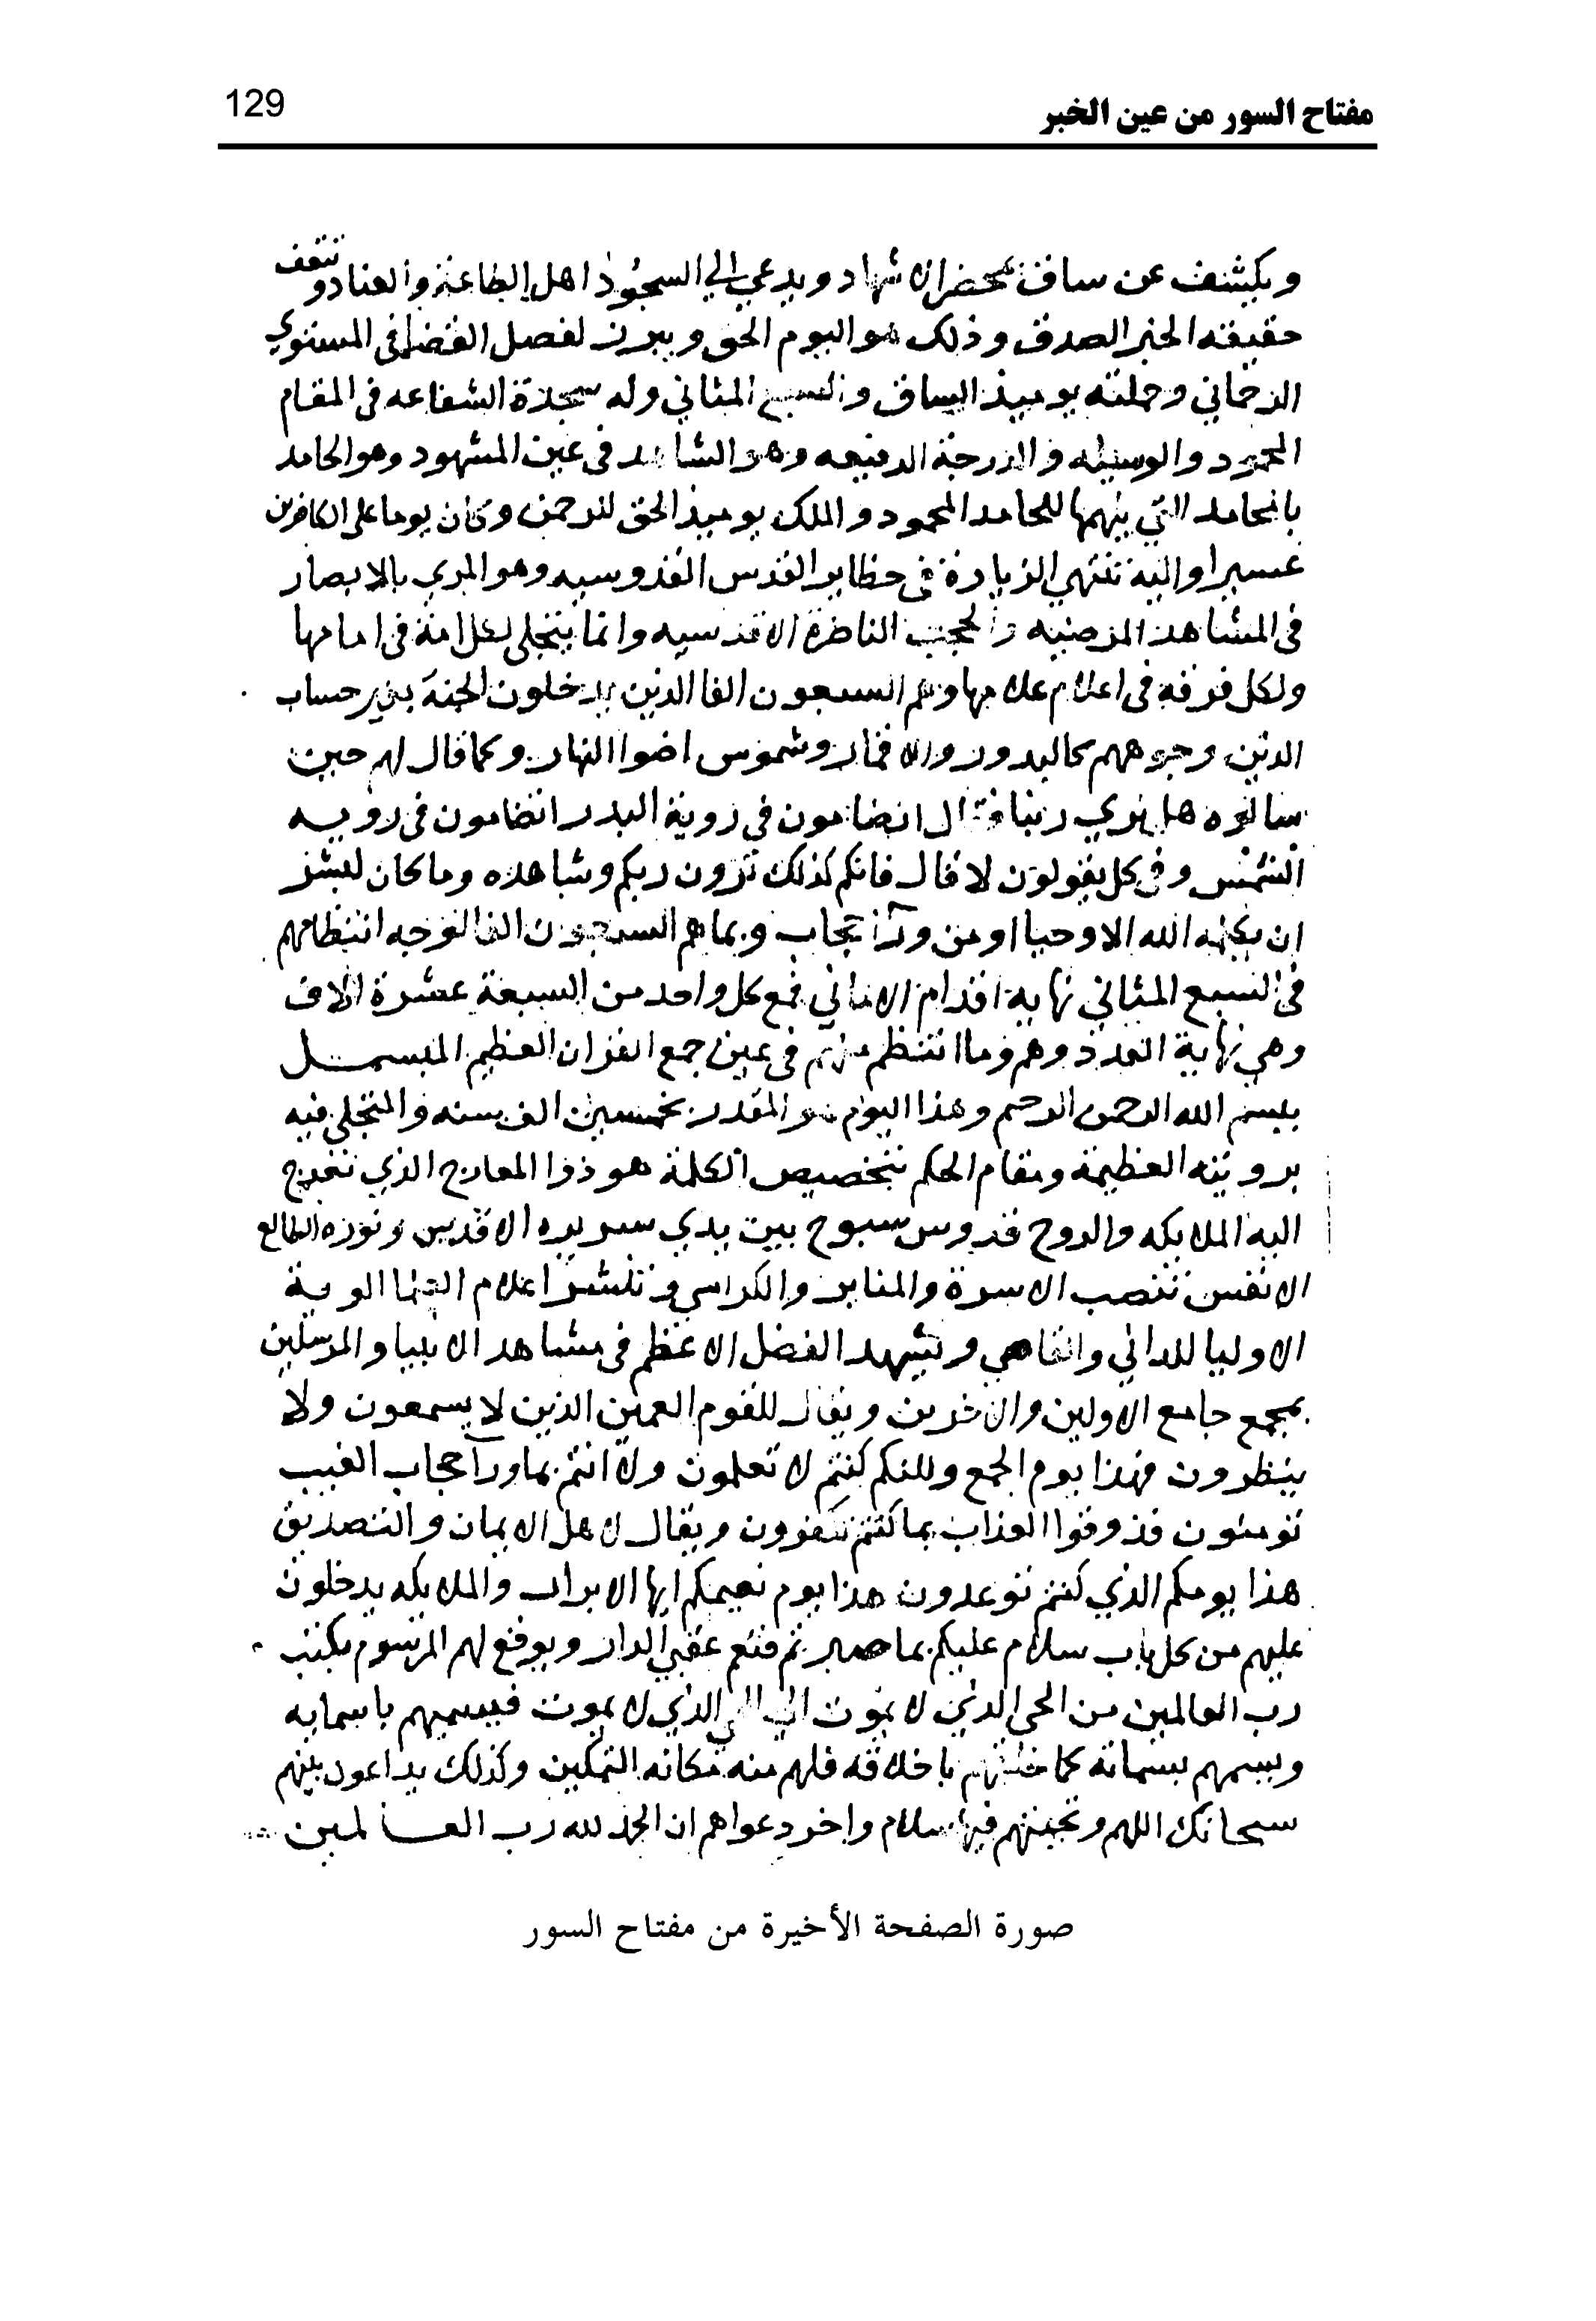 مفتاح السور من عين الخبر
129
ويكشف عن ساق بمحضر الاشهاد ويدعي الي السجود اهل الطاعة والعناد و
حقيقه الخبر الصدق وذلك هو اليوم الحق ويبرز لفصل القضا في المستوي
الرحماني وحملته يوميذ الساق والسبع المثاني وله سجدة الشفاعه في المقام
المحمود والوسيله والدرجة الرفيعه وهو الشاهد في عين المشهود وهو الحامد
بالمحامد التي يلهمها للحامد المحمود والملك يوميذ الحق للرحمن وكان يوما علي الكافرين
عسيرا واليه تنتهي الزيارة في حظاير القدس القدوسيه وهو المري بالابصار
في المشاهد المرضيه والحجب الناظرة الاقدسيه وانما يتجلي لكل امة في امامها
ولكل فرقة في اعلام علامها وهم السبعون الفا الذين يدخلون الجنة بغير حساب
الذين وجوههم كالبدور والاقمار وشموس اضوا النهار وكما قال لهم حين
سالوه هل نري ربنا فقال اتضامون في روية البدر اتضامون في رويه
الشمس وفي كل يقولون لا قال فانكم كذلك ترون ربكم وشاهده وما كان لبشر
ان يكلمه الله الا وحيا او من ورآ حجاب وبما هم السبعون الفا لوجه انتظامهم
في السبع المثاني نهاية اقدام الاماني فمع كل واحد من السبعة عشرة الاف
وهي نهاية العدد وهم وما انتظم منهم في عين جمع القران العظيم المبسمل
ببسم الله الرحمن الرحيم وهذا اليوم هو المقدر بخمسين الف سنه والمتجلي فيه
برويته العظيمة ومقام الحكم بتخصيص الكلمة هو ذو المعارج الذي تعرج
اليه الملايكه والروح قدوس سبوح بين يدي سريره الاقدس ونوره الطالع
الانفس تنتصب الاسرة والمنابر والكراسي وتنشر اعلام الوية
الاوليا للداني والقاصي وتشهد الفضل الاعظم في مشاهد الانبيا والمرسلين
بمجمع جامع الاولين والاخرين ويقال للقوم العمين الذين لا يسمعون ولا
ينظرون فهذا يوم الجمع ولكنكم كنتم لا تعلمون ولا انتم بما ورآ حجاب الغيب
تومنون فذوقوا العذاب بما كنتم تكفرون ويقال لاهل الايمان والتصديق
هذا يومكم الذي كنتم توعدون هذا يوم نعيمكم ايها الابرار والملايكه يدخلون
عليهم من كل باب سلام عليكم بما صبرتم فنعم عقبي الدار ويوقع لهم المرسوم بكتب
رب العالمين من الحي الذي لا يموت الي الحي الذي لا يموت فيسميهم باسمايه
ويسمهم بسماته كما خلقهم باخلاقه فلهم منه مكانه التمكين وكذلك يداعون بينهم
سبحانك اللهم وتحيتهم فيها سلام واخر دعواهم ان الحمد لله رب العالمين
صورة الصفحة الأخيرة من مفتاح السور